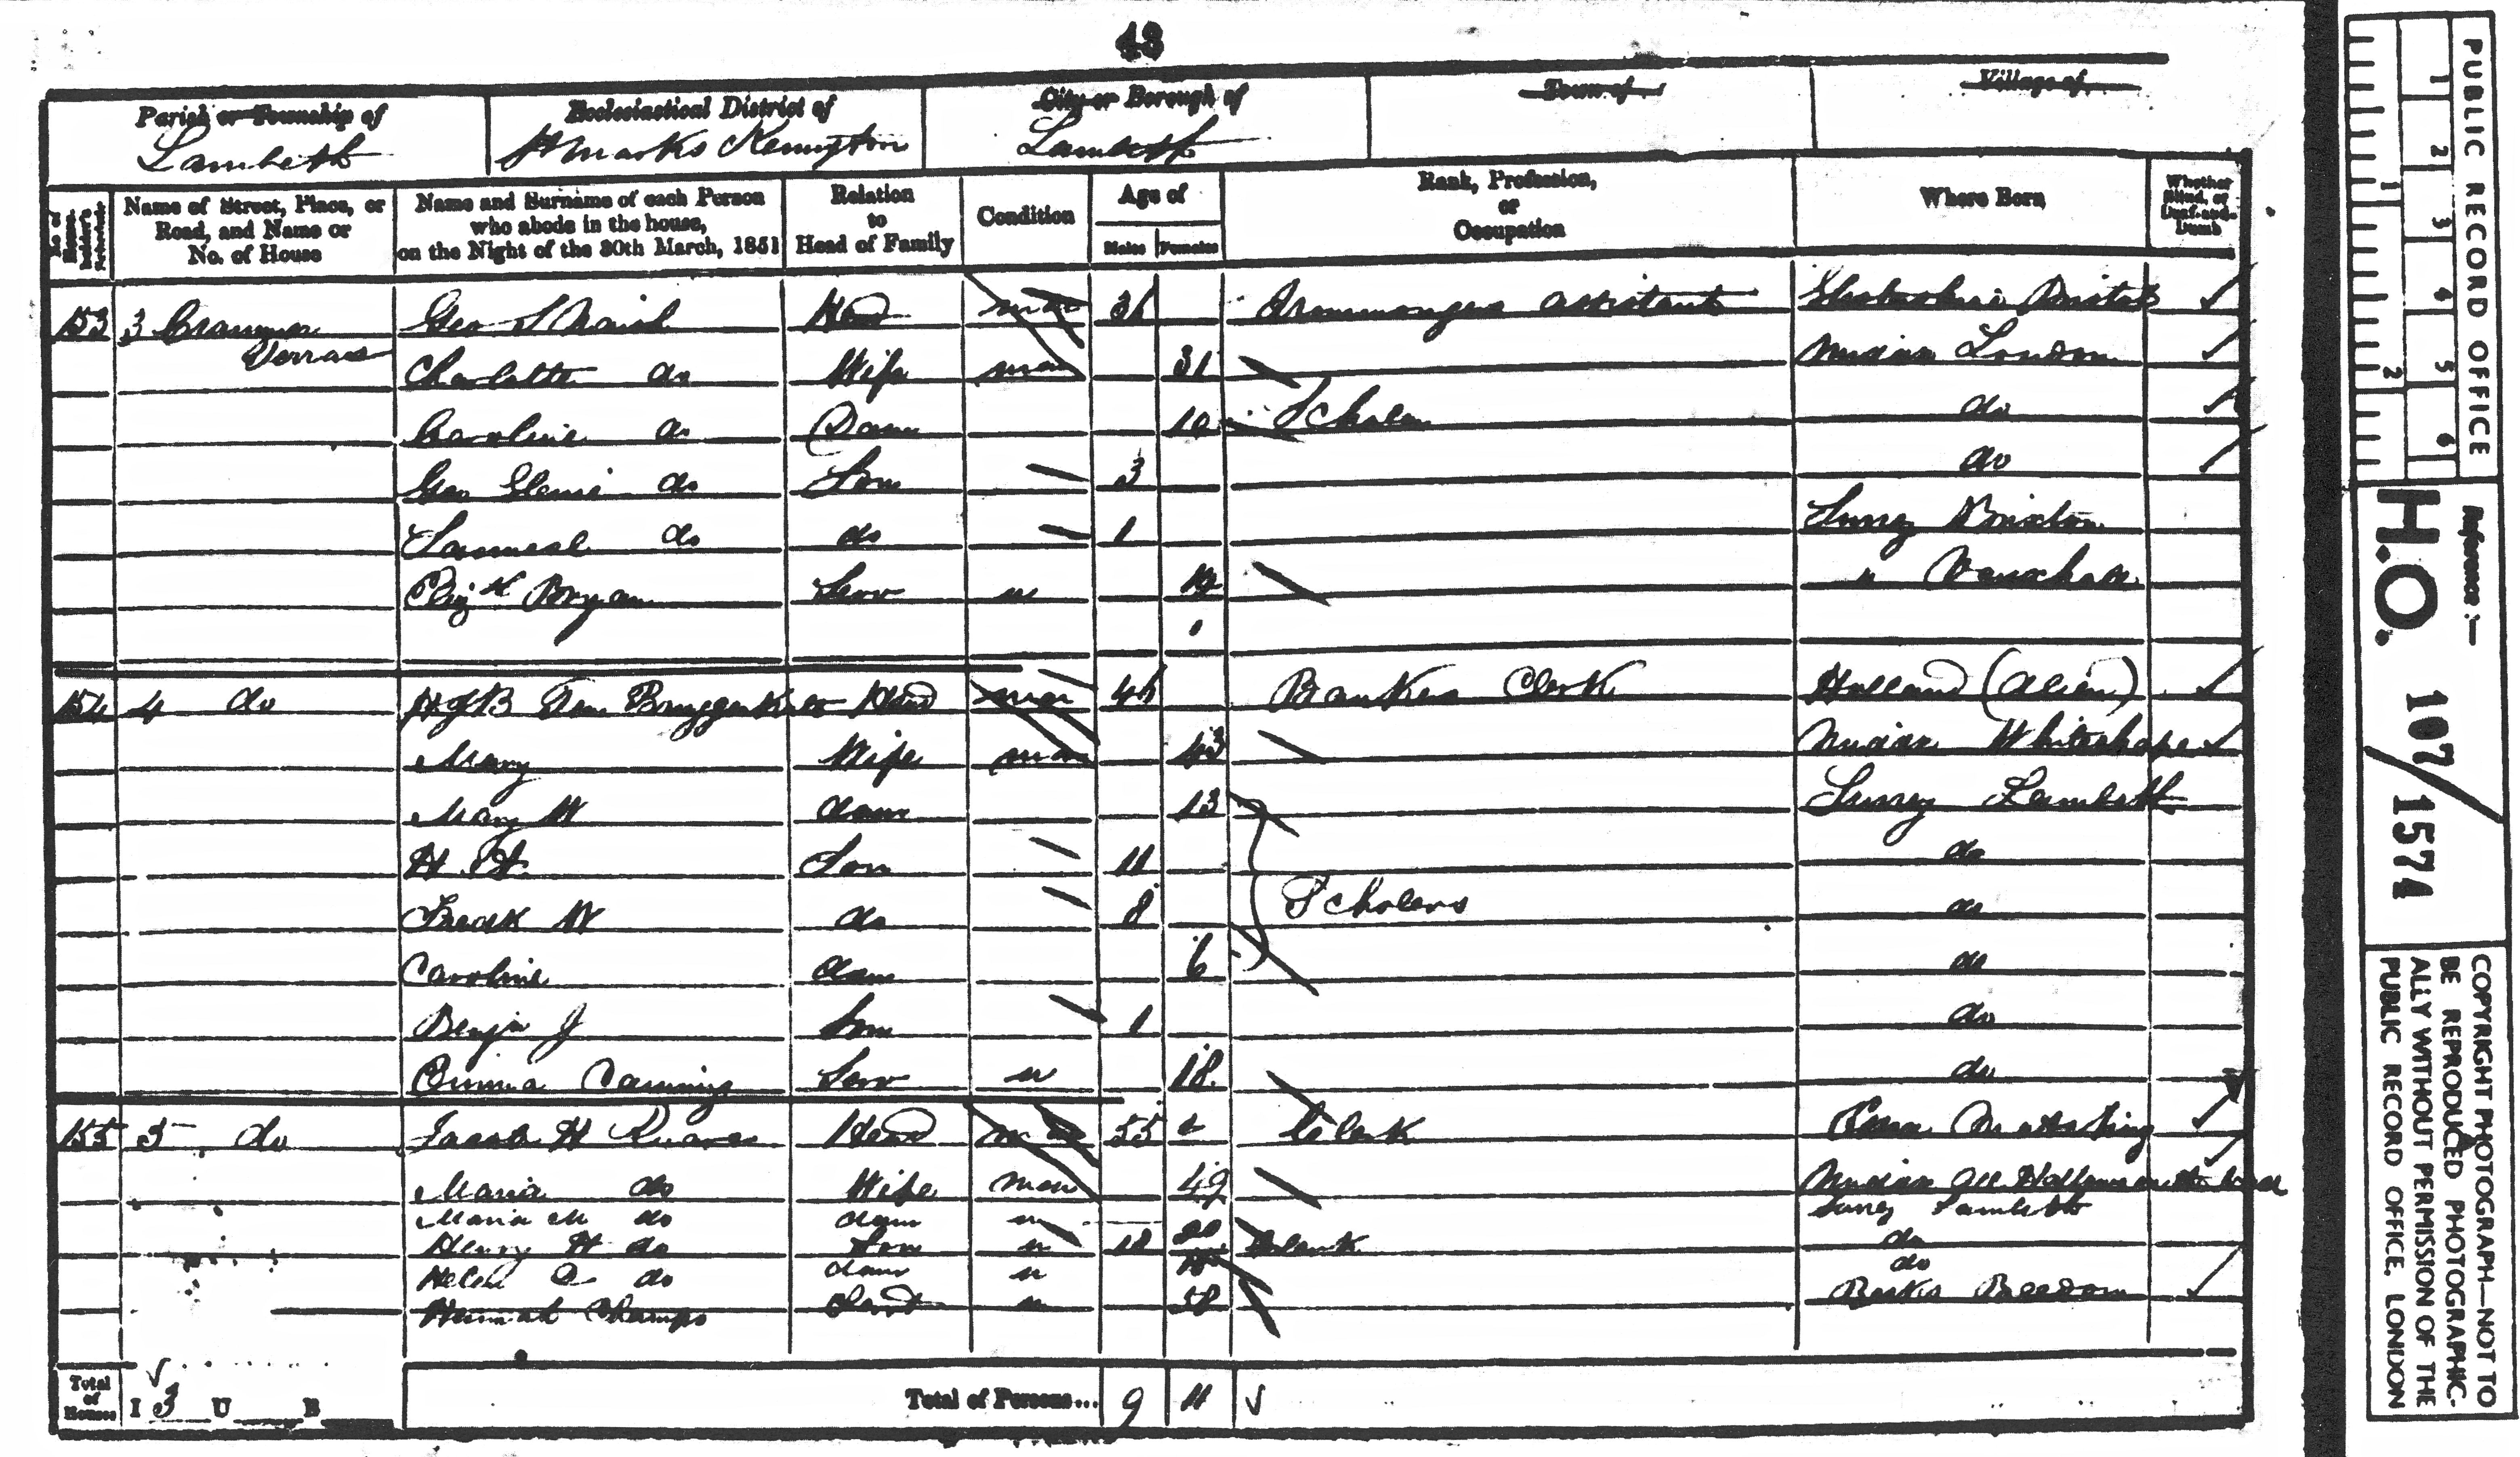 43
Parish or Township of
Lambeth
Ecclesiastical District of
St Marks Kennington
City or Borough of
Lambeth
Town of
Village of
No. of House-holder's Schedule
Name of Street, Place, or Road, and Name or No. of House
Name and Surname of each Person who abode in the house, on the Night of the 30th March, 1851
Relation to Head of Family
Condition
Age of
Males Females
Rank, Profession, or Occupation
Where Born
Whether Blind, or Deaf-and-Dumb
153 3 Geo Head mar 31 assistant Bristol
Charlotte do Wife mar 31 London
Caroline do Daur 10 Scholar do
Geo do Son 3 do
Samuel do do 1 Surrey Brixton
Eliz Bryan Serv u Vauxhall
154 4 do Head mar Bankers Clerk Holland (Alien)
Mary Wife mar 43
Mary W daur 13 Surrey Lambeth
Son 11 do
Fredk W do 8 Scholars do
Caroline daur 6 do
Benjn J Son 1 do
Emma Serv u 18 do
155 5 do Jacob H Head mar 55 Clerk
Maria do Wife mar 49
Maria M do daur u Surrey Lambeth
Henry H do Son u 18 Clerk do
do daur u do
Champs u Berks
Total of Houses I 3 U B
Total of Persons... 9 11
PUBLIC RECORD OFFICE
1 2 3 4 5 6
1 2
Reference :-
H.O. 107/1574
COPYRIGHT PHOTOGRAPH—NOT TO
BE REPRODUCED PHOTOGRAPHIC-
ALLY WITHOUT PERMISSION OF THE
PUBLIC RECORD OFFICE, LONDON